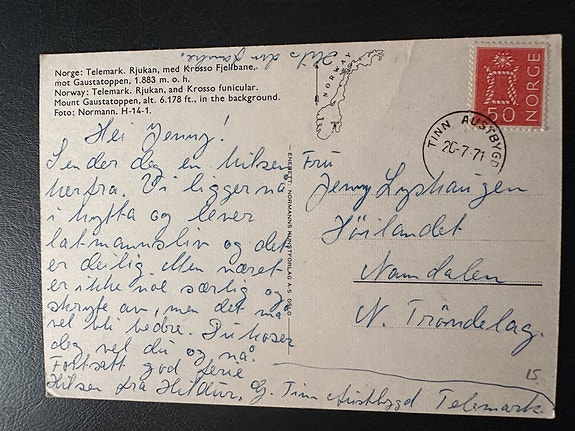 Hils din Familie.
Norge: Telemark. Rjukan, med Krosso Fjellbane,
mot Gaustatoppen, 1.883 m. o. h.
Norway: Telemark. Rjukan, and Krosso funicular.
Mount Gaustatoppen, alt. 6.178 ft., in the background.
Foto: Normann. H-14-1.
NORWAY
50 NORGE
TINN AUSTBYGD
26-7-71
Hei Jenny!
Sender deg en hilsen
herfra. Vi ligger nå
i hytta og lever
latmannsliv og det
er deilig. Men været
er ikke noe særlig og
skryte av, men det må
vel bli bedre. Du koser
deg vel du og nå.
Fortsatt god ferie
Hilsen fra Hildur. G. Tinn Austbygd Telemark.
ENERETT: NORMANNS KUNSTFORLAG A.S. OSLO
Fru
Jenny
Høilandet
Namdalen
N. Trøndelag.
15